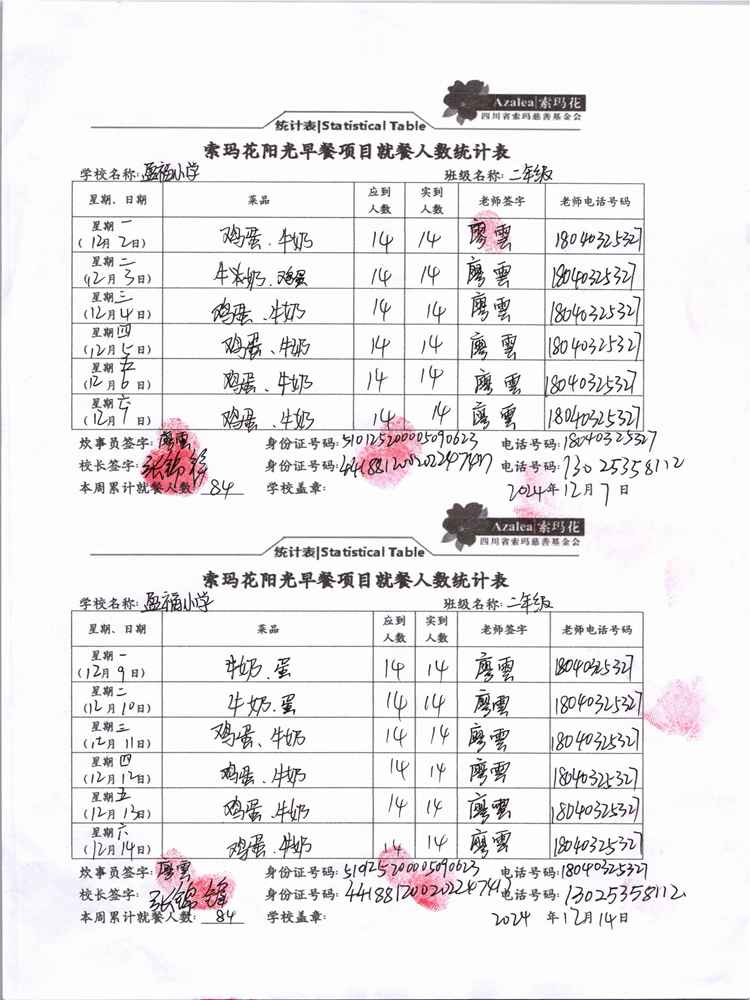 Azalea 索玛花
四川省索玛慈善基金会
统计表|Statistical Table
索玛花阳光早餐项目就餐人数统计表
学校名称: 盈福小学 班级名称: 二年级
星期、日期 菜品 应到人数 实到人数 老师签字 老师电话号码
星期一 (12月2日) 鸡蛋、牛奶 14 14 廖雲 18040325327
星期二 (12月3日) 牛奶、鸡蛋 14 14 廖雲 18040325327
星期三 (12月4日) 鸡蛋、牛奶 14 14 廖雲 18040325327
星期四 (12月5日) 鸡蛋、牛奶 14 14 廖雲 18040325327
星期五 (12月6日) 鸡蛋、牛奶 14 14 廖雲 18040325327
星期六 (12月7日) 鸡蛋、牛奶 14 14 廖雲 18040325327
炊事员签字: 廖雲 身份证号码: 510125200005090623 电话号码: 18040325327
校长签字: 张锦锋 身份证号码: 电话号码: 13025358112
本周累计就餐人数: 84 学校盖章: 2024年12月7日
Azalea 索玛花
四川省索玛慈善基金会
统计表|Statistical Table
索玛花阳光早餐项目就餐人数统计表
学校名称: 盈福小学 班级名称: 二年级
星期、日期 菜品 应到人数 实到人数 老师签字 老师电话号码
星期一 (12月9日) 牛奶、蛋 14 14 廖雲 18040325327
星期二 (12月10日) 牛奶、蛋 14 14 廖雲 18040325327
星期三 (12月11日) 鸡蛋、牛奶 14 14 廖雲 18040325327
星期四 (12月12日) 鸡蛋、牛奶 14 14 廖雲 18040325327
星期五 (12月13日) 鸡蛋、牛奶 14 14 廖雲 18040325327
星期六 (12月14日) 鸡蛋、牛奶 14 14 廖雲 18040325327
炊事员签字: 廖雲 身份证号码: 510125200005090623 电话号码: 18040325327
校长签字: 张锦锋 身份证号码: 电话号码: 13025358112
本周累计就餐人数: 84 学校盖章: 2024年12月14日